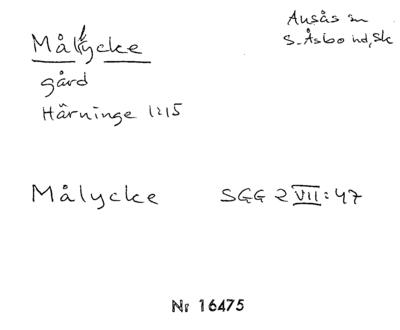 Målycke
Ausås sn
S. Åsbo hd, Sk
gård
Härninge 1:15
Målycke SGG 2 VII:47
Nr 16475